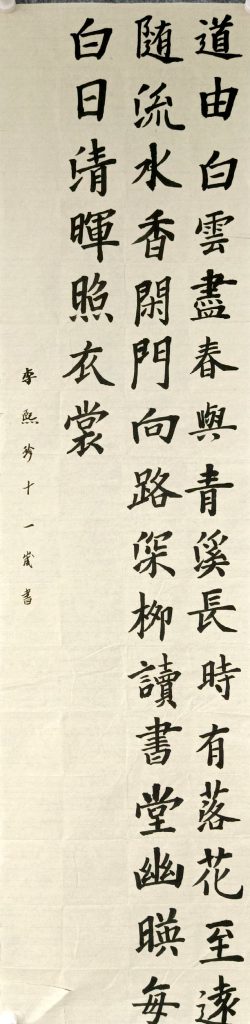 道由白雲盡春與青溪長時有落花至遠
随流水香閑門向路深柳讀書堂幽暎每
白日清暉照衣裳
李熙珍十一歲書